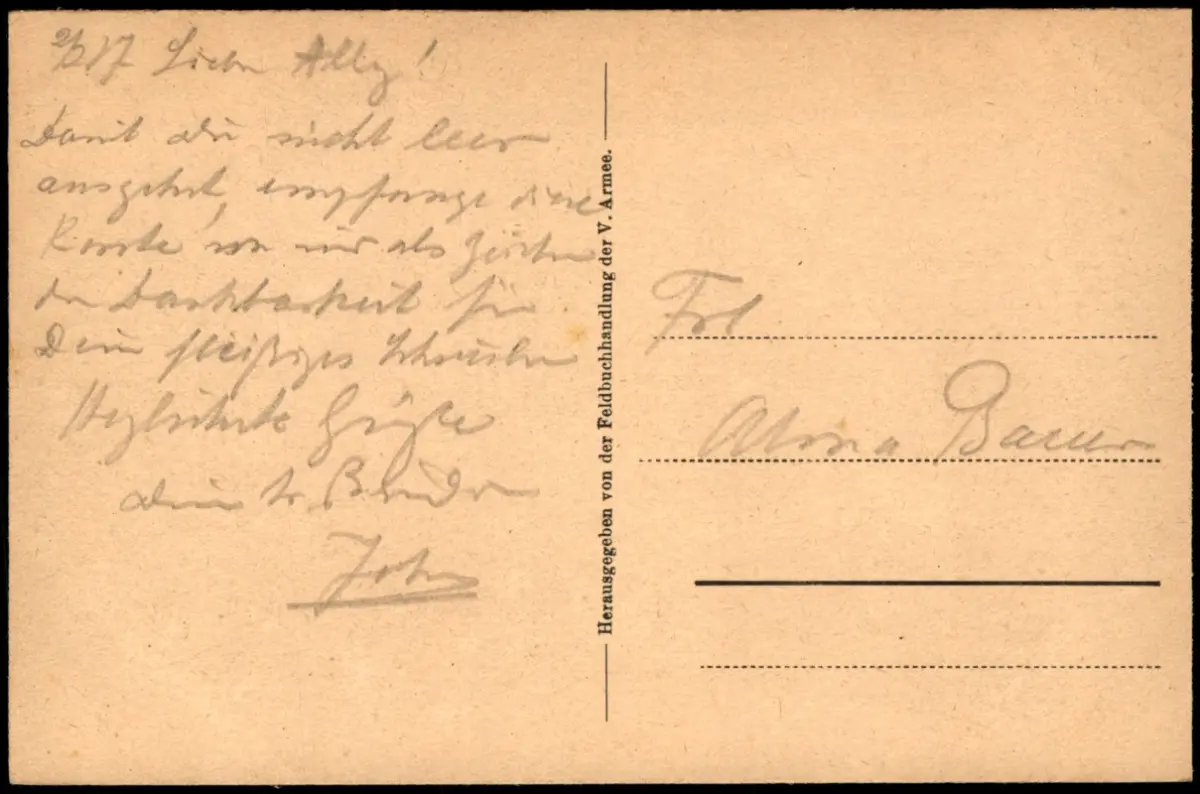 Liebe Ally!
Damit du nicht leer
ausgehst, empfange diese
Karte von mir als Zeichen
der Dankbarkeit für
Dein fleißiges Schreiben
Herzlichste Grüße
dein tr. Bruder
John
Herausgegeben von der Feldbuchhandlung der V. Armee.
Frl
Alma Bauer